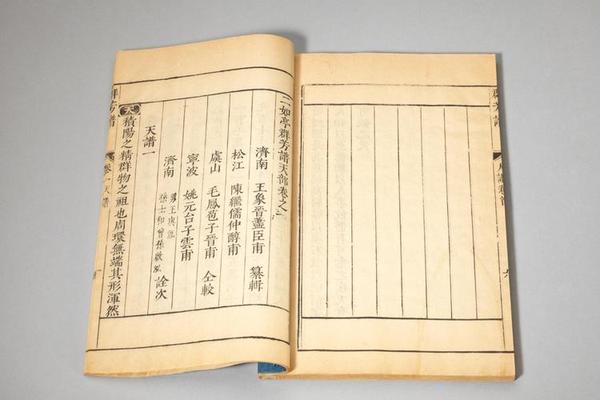 群芳譜
二如亭群芳譜天部卷之一
濟南 王象晉藎臣甫 纂輯
松江 陳繼儒仲醇甫
虞山 毛鳳苞子晉甫 仝較
寧波 姚元台子雲甫
濟南 男王 孫士和曾孫啟 詮次
天譜一
天積陽之精群物之祖也周環無端其形渾然
群芳譜 卷一天譜